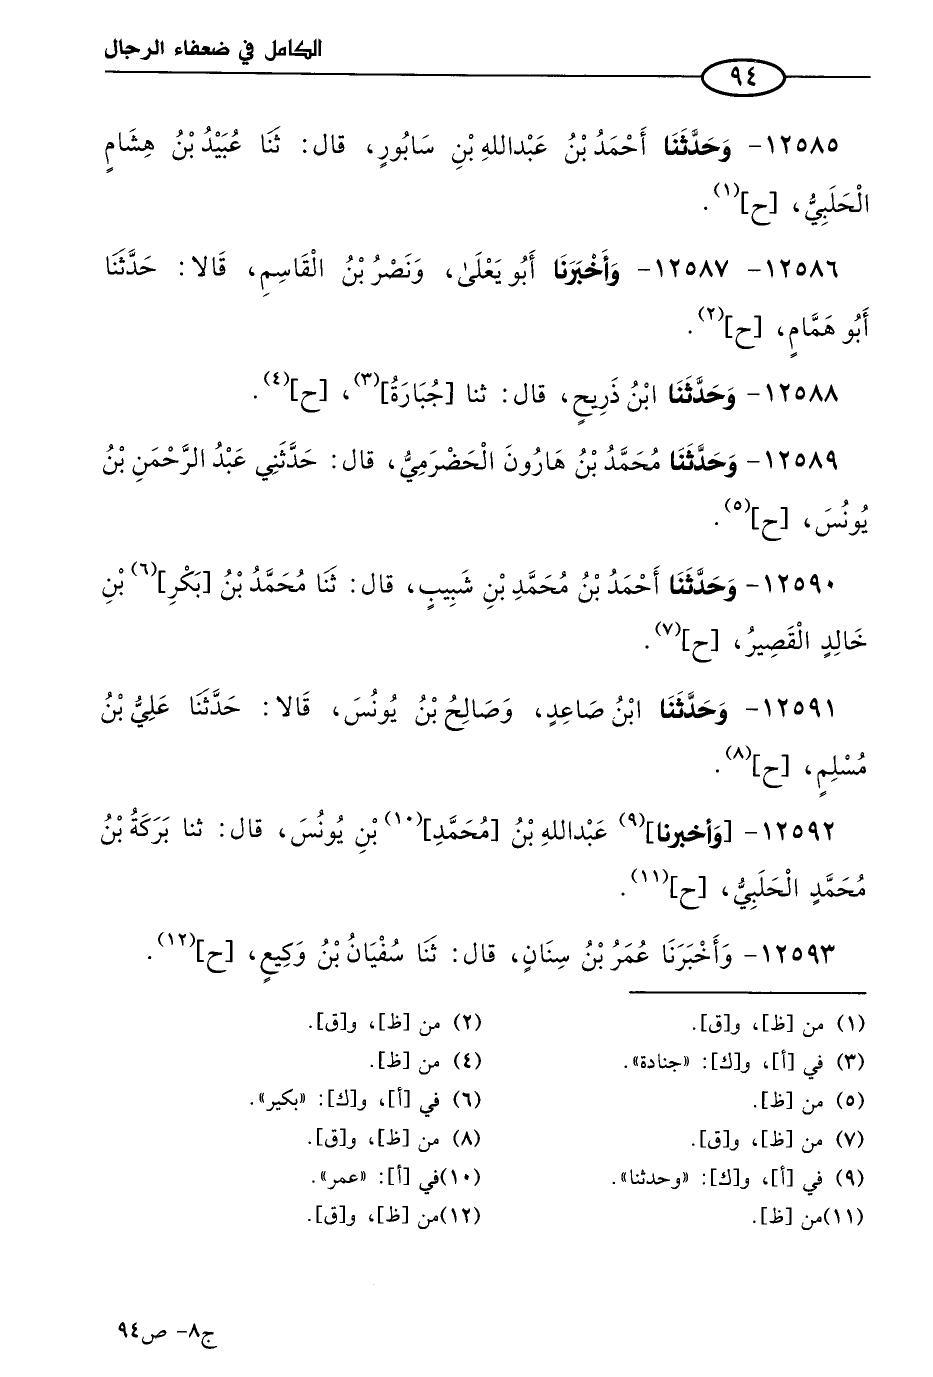 الكامل في ضعفاء الرجال
٩٤
١٢٥٨٥- وَحَدَّثَنَا أَحْمَدُ بْنُ عَبْداللهِ بْنِ سَابُورٍ، قال: ثَنَا عُبَيْدُ بْنُ هِشَامٍ
الْحَلَبِيُّ، [ح](١).
١٢٥٨٦- ١٢٥٨٧- وَأَخْبَرَنَا أَبُو يَعْلَىٰ، وَنَصْرُ بْنُ الْقَاسِمِ، قَالا: حَدَّثَنَا
أَبُو هَمَّامٍ، [ح](٢).
١٢٥٨٨- وَحَدَّثَنَا ابْنُ ذَرِيحٍ، قال: ثنا [جُبَارَةُ](٣)، [ح](٤).
١٢٥٨٩- وَحَدَّثَنَا مُحَمَّدُ بْنُ هَارُونَ الْحَضْرَمِيُّ، قال: حَدَّثَنِي عَبْدُ الرَّحْمَنِ بْنُ
يُونُسَ، [ح](٥).
١٢٥٩٠- وَحَدَّثَنَا أَحْمَدُ بْنُ مُحَمَّدِ بْنِ شَبِيبٍ، قال: ثَنَا مُحَمَّدُ بْنُ [بَكْرِ](٦) بْنِ
خَالِدٍ الْقَصِيرُ، [ح](٧).
١٢٥٩١- وَحَدَّثَنَا ابْنُ صَاعِدٍ، وَصَالِحُ بْنُ يُونُسَ، قَالا: حَدَّثَنَا عَلِيُّ بْنُ
مُسْلِمٍ، [ح](٨).
١٢٥٩٢- [وَأخبرنا](٩) عَبْداللهِ بْنُ [مُحَمَّدِ](١٠) بْنِ يُونُسَ، قال: ثنا بَرَكَةُ بْنُ
مُحَمَّدٍ الْحَلَبِيُّ، [ح](١١).
١٢٥٩٣- وَأَخْبَرَنَا عُمَرُ بْنُ سِنَانٍ، قال: ثَنَا سُفْيَانُ بْنُ وَكِيعٍ، [ح](١٢).
(١) من [ظ]، و[ق].
(٢) من [ظ]، و[ق].
(٣) في [أ]، و[ك]: «جنادة».
(٤) من [ظ].
(٥) من [ظ].
(٦) في [أ]، و[ك]: «بكير».
(٧) من [ظ]، و[ق].
(٨) من [ظ]، و[ق].
(٩) في [أ]، و[ك]: «وحدثنا».
(١٠)في [أ]: «عمر».
(١١)من [ظ].
(١٢)من [ظ]، و[ق].
ج٨- ص٩٤